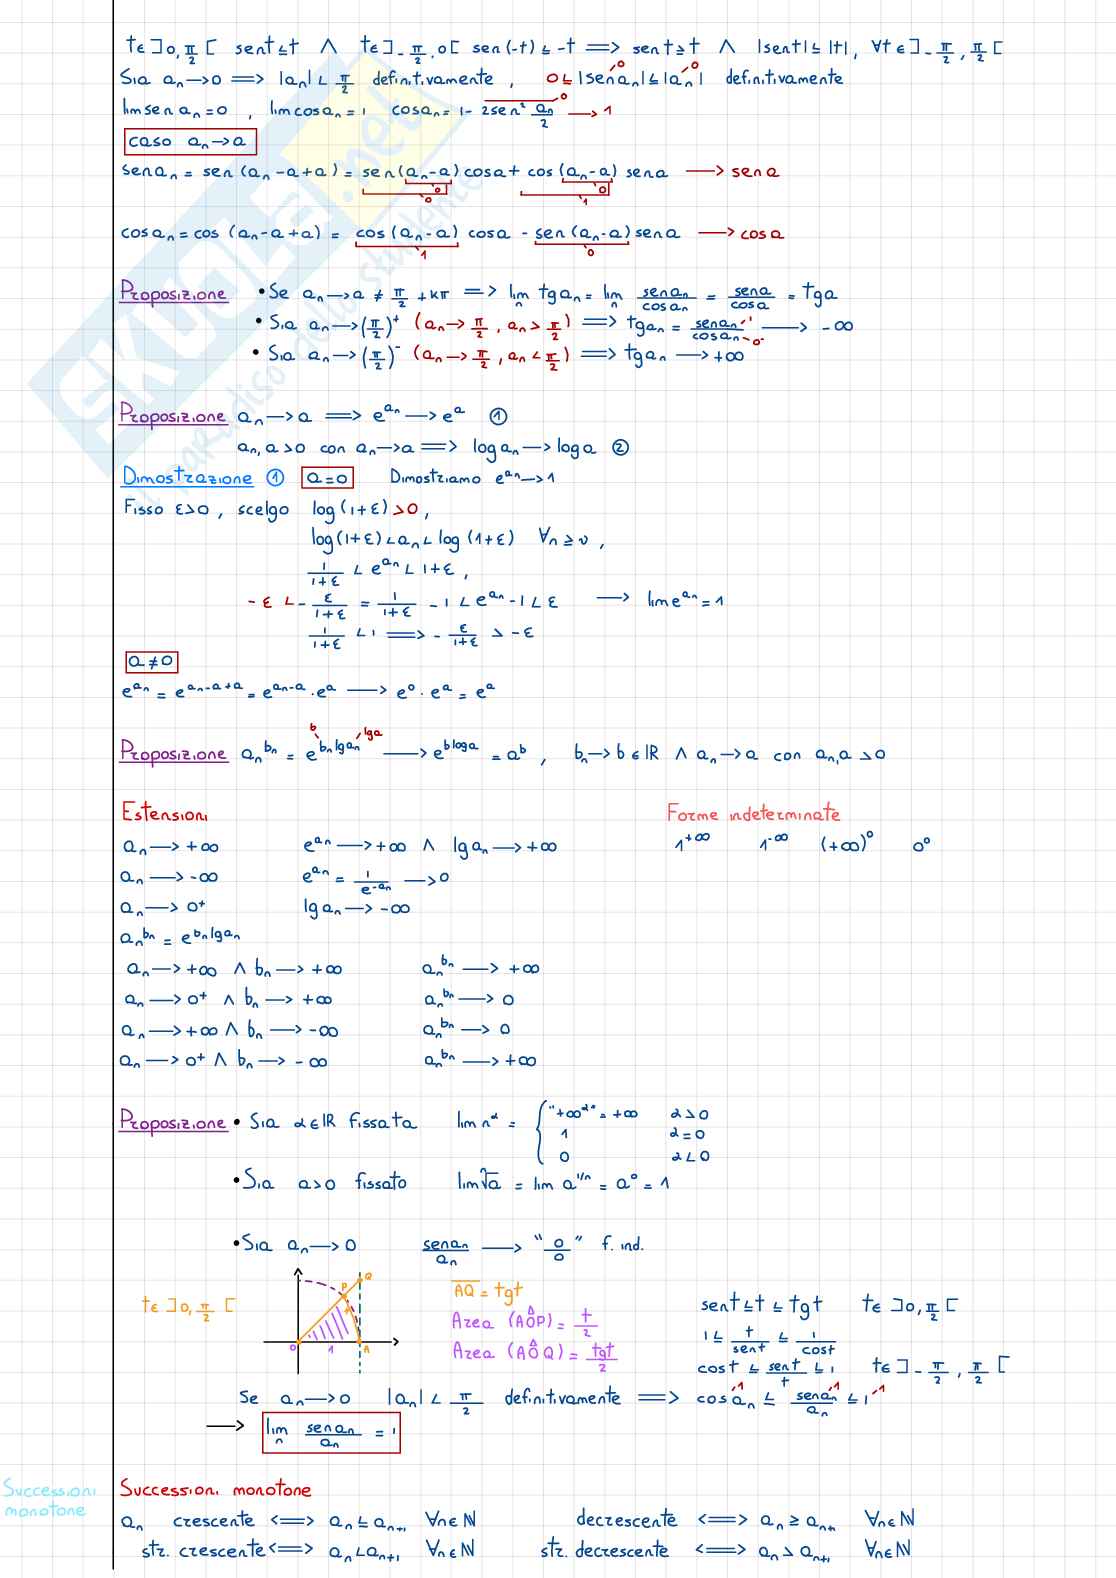 t∈]0,π/2[ sent≤t ∧ t∈]-π/2,0[ sen(-t)≤-t ⟹ sent≥t ∧ |sent|≤|t|, ∀t∈]-π/2,π/2[
Sia aₙ→0 ⟹ |aₙ|<π/2 definitivamente, 0≤|senaₙ|→0≤|aₙ|→0 definitivamente
limsen aₙ=0 , limcosaₙ=1 cosaₙ=1-2sen² aₙ/2 →0 → 1
caso aₙ→a
senaₙ = sen(aₙ-a+a) = sen(aₙ-a) cosa + cos(aₙ-a) sena → sena
→0 →0
→0 →1
cosaₙ=cos(aₙ-a+a) = cos(aₙ-a) cosa - sen(aₙ-a) sena → cosa
→1 →0
Proposizione • Se aₙ→a ≠ π/2 +kπ ⟹ limₙ tgaₙ = limₙ senaₙ/cosaₙ = sena/cosa = tga
• Sia aₙ→(π/2)⁺ (aₙ→π/2, aₙ>π/2) ⟹ tgaₙ = senaₙ→1/cosaₙ→0⁻ → -∞
• Sia aₙ→(π/2)⁻ (aₙ→π/2, aₙ<π/2) ⟹ tgaₙ → +∞
Proposizione aₙ→a ⟹ e^aₙ → e^a ①
aₙ,a>0 con aₙ→a ⟹ logaₙ→loga ②
Dimostrazione ① a=0 Dimostriamo e^aₙ→1
Fisso ε>0, scelgo log(1+ε)>0,
log(1+ε)<aₙ<log(1+ε) ∀n≥ν,
1/(1+ε) < e^aₙ < 1+ε,
-ε < -ε/(1+ε) = 1/(1+ε) -1 < e^aₙ -1 < ε → lime^aₙ=1
1/(1+ε) <1 ⟹ -ε/(1+ε) > -ε
a≠0
e^aₙ = e^(aₙ-a+a) = e^(aₙ-a)·e^a → e⁰·e^a = e^a
b lga
Proposizione aₙ^bₙ = e^(bₙlgaₙ) → e^(bloga) = a^b , bₙ→b∈ℝ ∧ aₙ→a con aₙ,a>0
Estensioni Forme indeterminate
aₙ→+∞ e^aₙ→+∞ ∧ lgaₙ→+∞ 1^+∞ 1^-∞ (+∞)⁰ 0⁰
aₙ→-∞ e^aₙ = 1/e^-aₙ →0
aₙ→0⁺ lgaₙ→-∞
aₙ^bₙ = e^(bₙlgaₙ)
aₙ→+∞ ∧ bₙ→+∞ aₙ^bₙ→+∞
aₙ→0⁺ ∧ bₙ→+∞ aₙ^bₙ→0
aₙ→+∞ ∧ bₙ→-∞ aₙ^bₙ→0
aₙ→0⁺ ∧ bₙ→-∞ aₙ^bₙ→+∞
Proposizione • Sia α∈ℝ fissata lim n^α = { "+∞^α" = +∞ α>0
1 α=0
0 α<0
• Sia a>0 fissato lim ⁿ√a = lim a^(1/n) = a⁰ = 1
• Sia aₙ→0 senaₙ/aₙ → "0/0" f. ind.
t∈]0,π/2[
P Q
O 1 A
AQ = tgt
Area (AÔP) = t/2
Area (AÔQ) = tgt/2
sent≤t≤tgt t∈]0,π/2[
1≤ t/sent ≤ 1/cost
cost ≤ sent/t ≤1 t∈]-π/2,π/2[
Se aₙ→0 |aₙ|<π/2 definitivamente ⟹ cosaₙ→1 ≤ senaₙ/aₙ→1 ≤ 1→1
→ limₙ senaₙ/aₙ = 1
Successioni monotone
Successioni monotone
aₙ crescente ⟺ aₙ≤aₙ₊₁ ∀n∈ℕ decrescente ⟺ aₙ≥aₙ₊₁ ∀n∈ℕ
str. crescente ⟺ aₙ<aₙ₊₁ ∀n∈ℕ str. decrescente ⟺ aₙ>aₙ₊₁ ∀n∈ℕ
SKUOLA.net
il paradiso dello studente